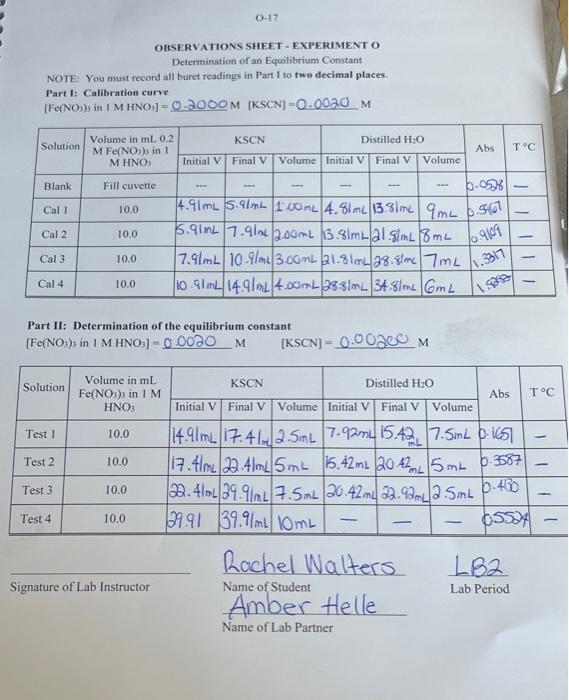 O-17
OBSERVATIONS SHEET - EXPERIMENT O
Determination of an Equilibrium Constant
NOTE: You must record all buret readings in Part I to two decimal places.
Part I: Calibration curve
[Fe(NO₃)₃ in 1 M HNO₃] = 0.2000 M [KSCN] = 0.0020 M
Solution Volume in mL 0.2 M Fe(NO₃)₃ in 1 M HNO₃ KSCN Distilled H₂O Abs T °C
Initial V Final V Volume Initial V Final V Volume
Blank Fill cuvette --- --- --- --- --- --- 0.0528 —
Cal 1 10.0 4.91mL 5.91mL 1.00mL 4.81mL 13.81mL 9mL —
Cal 2 10.0 5.91mL 7.91mL 2.00mL 13.81mL 21.81mL 8mL 0.9109 —
Cal 3 10.0 7.91mL 10.91mL 3.00mL 21.81mL 28.81mL 7mL 1.3317 —
Cal 4 10.0 10.91mL 14.91mL 4.00mL 28.81mL 34.81mL 6mL —
Part II: Determination of the equilibrium constant
[Fe(NO₃)₃ in 1 M HNO₃] = 0.0020 M [KSCN] = 0.00200 M
Solution Volume in mL Fe(NO₃)₃ in 1 M HNO₃ KSCN Distilled H₂O Abs T °C
Initial V Final V Volume Initial V Final V Volume
Test 1 10.0 14.91mL 17.41mL 2.5mL 7.92mL 15.42mL 7.5mL 0.1651 —
Test 2 10.0 17.41mL 22.41mL 5mL 15.42mL 20.42mL 5mL 0.3587 —
Test 3 10.0 22.41mL 29.91mL 7.5mL 20.42mL 22.92mL 2.5mL —
Test 4 10.0 29.91 39.91mL 10mL — — — 0.5524 —
Rachel Walters LB2
Signature of Lab Instructor Name of Student Lab Period
Amber Helle
Name of Lab Partner